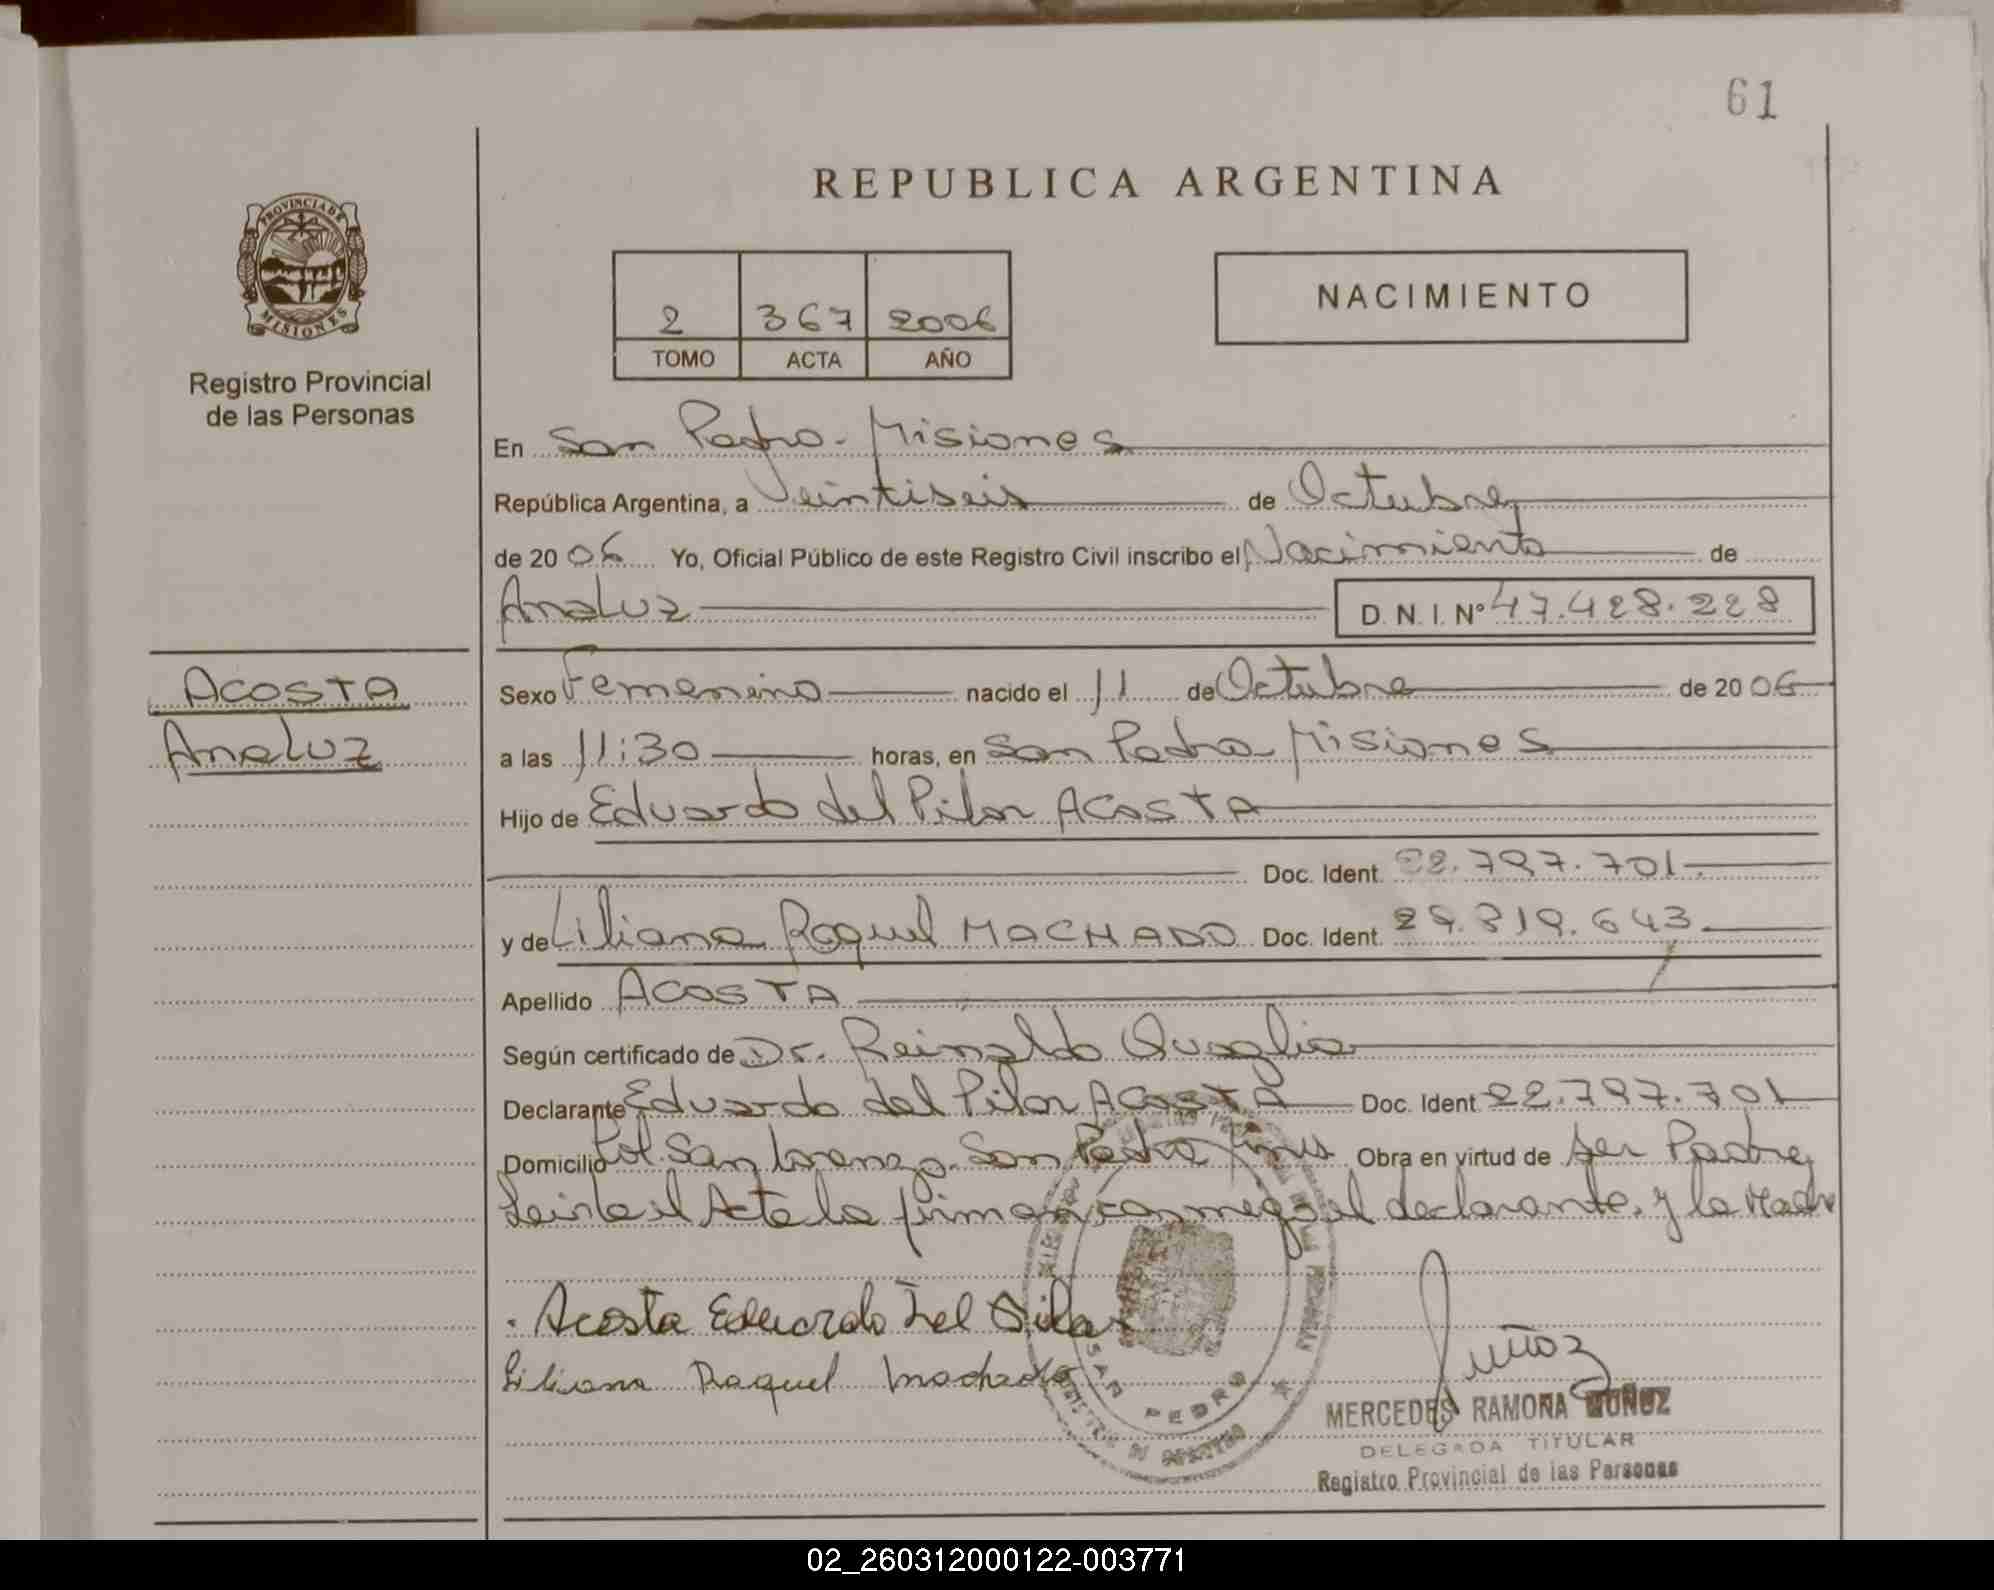 61
REPUBLICA ARGENTINA
PROVINCIA DE
MISIONES
Registro Provincial
de las Personas
2 367 2006
TOMO ACTA AÑO
NACIMIENTO
En San Pedro - Misiones
República Argentina, a Veintiseis de Octubre
de 2006 Yo, Oficial Público de este Registro Civil inscribo el Nacimiento de
Analuz D. N. I. Nº 47.428.228
ACOSTA
Analuz
Sexo Femenino nacido el 11 de Octubre de 2006
a las 11:30 horas, en San Pedro Misiones
Hijo de Eduardo del Pilar ACOSTA
Doc. Ident. 22.797.701.
y de Liliana Raquel MACHADO Doc. Ident. 29.819.643
Apellido ACOSTA
Según certificado de Dr. Reinaldo Quaglia
Declarante Eduardo del Pilar ACOSTA Doc. Ident 22.797.701
Domicilio San Lorenzo - San Pedro Mnes Obra en virtud de ser Padre
Leida el Acta la firman conmigo el declarante, y la Madre
Acosta Eduardo Del Pilar
Liliana Raquel Machado
SAN PEDRO
Muñoz
MERCEDES RAMONA MUÑOZ
DELEGADA TITULAR
Registro Provincial de las Personas
02_260312000122-003771